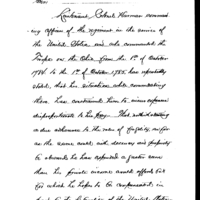 Lieutenant Colonel Harmar command
ing officer of the regiment in the service of
the United States and who commanded the
Troops on the Ohio from the 1st of October
1784 to the 1st of October 1785 has repeatedly
stated, that his situation while commanding
there has constrained him to incur expences
disproportionate to his pay. That notwithstanding
a due adherence to the rules of frugality, as far
as the same could with decency and propriety
be observed he has expended a quarter more
than his private income could afford
for which he hopes to be compensated, in
of the United States